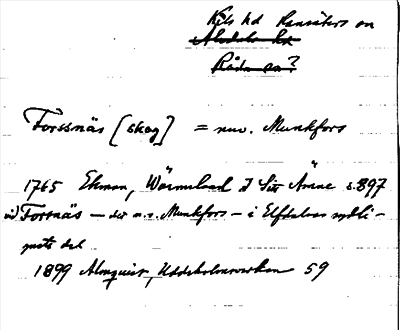 Kils hd Ransäters sn
Älvdals hd
Råda sn?
Forssnäs [skog] = nuv. Munkfors
1765 Ekman, Wärmeland I Sitt Ämne s. 897
vid Forsnäs – der n.v. Munkfors – i Elfdalens sydli-
gaste del
1899 Almquist, Uddeholmsverken 59